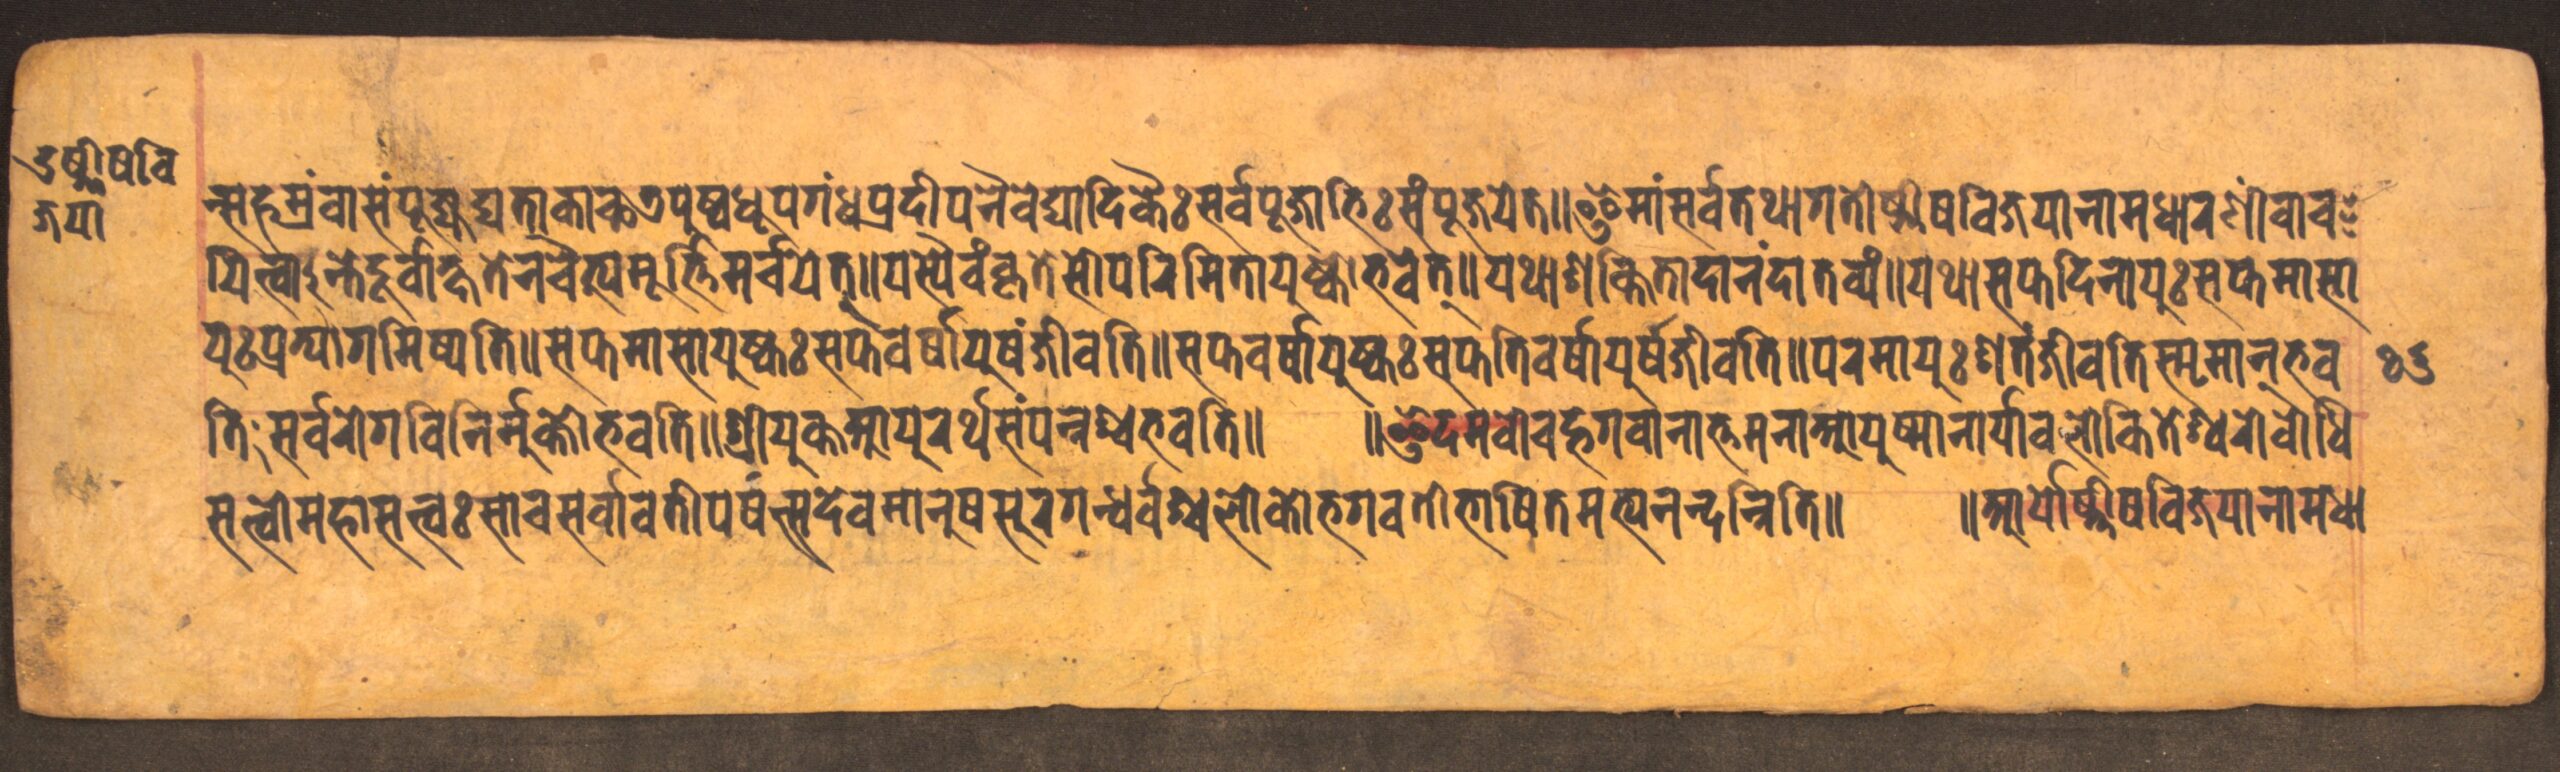 उष्णीषवि
जया
न्सहस्रंवासंपूज्यद्यताकाच्छत्रपुष्पधूपगंधप्रदीपनैवेद्यादिकैःसर्वपूजाभिःसंपूजयेत॥इमांसर्वतथागतोष्णीषविजयानामधारणींवाच
यित्वाऽन्तेदूर्वाक्षतेनचैत्यमूर्त्तिमर्चयेत्॥यस्यैवंकृतेसोपरिमितायुष्कोभवेत्॥यथाशक्तितादानंदातव्यं॥यथासप्तदिनायुःसप्तमासा
युःप्रत्यागमिष्यति॥सप्तमासायुष्कःसप्तवर्षायुषंजीवति॥सप्तवर्षायुष्कःसप्ततिवर्षायुर्षंजीवति॥परमायुःशतंजीवतिस्मृमान्भव
१६
तिःसर्वरोगविनिर्मुक्तोभवति॥श्रीयुक्तआयुरर्थसंपन्नश्चभवति॥ ॥इदमवोचद्भगवानात्तमनाआयुष्मानार्यावलोकितेश्वरोवोधि
सत्त्वोमहासत्त्वःसाचसर्वावतीपर्षत्सदेवमानुषसुरगन्धर्वश्चलोकोभगवतोभाषितमत्यनन्दन्निति॥ ॥आर्योष्णीषविजयानामधा